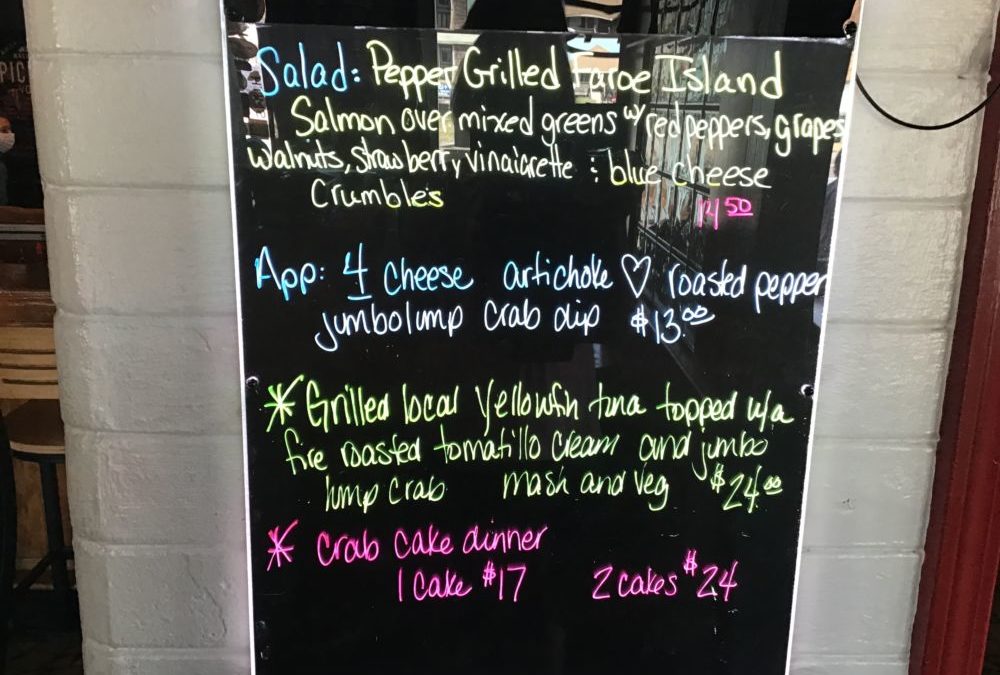 PIC
Salad: Pepper Grilled Faroe Island
Salmon over mixed greens w/ red peppers, grapes
Walnuts, strawberry vinaicrette : blue cheese
Crumbles
14 50
App: 4 cheese artichoke ♡ roasted pepper
jumbolump crab dip $13.00
* Grilled local Yellowfin tuna topped w/a
fire roasted tomatillo cream and jumbo
lump crab mash and veg $24.00
* Crab cake dinner
1 cake $17 2 cakes $24